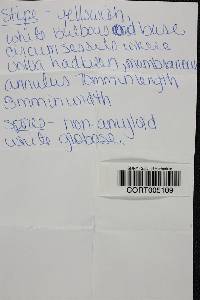 Stipe - yellowish,
white bulbous and base
circumsessile where
volva had been, membranous
annulus 10mm in length
3mm in width
Spores - non amyloid
white globose.
CORT005109